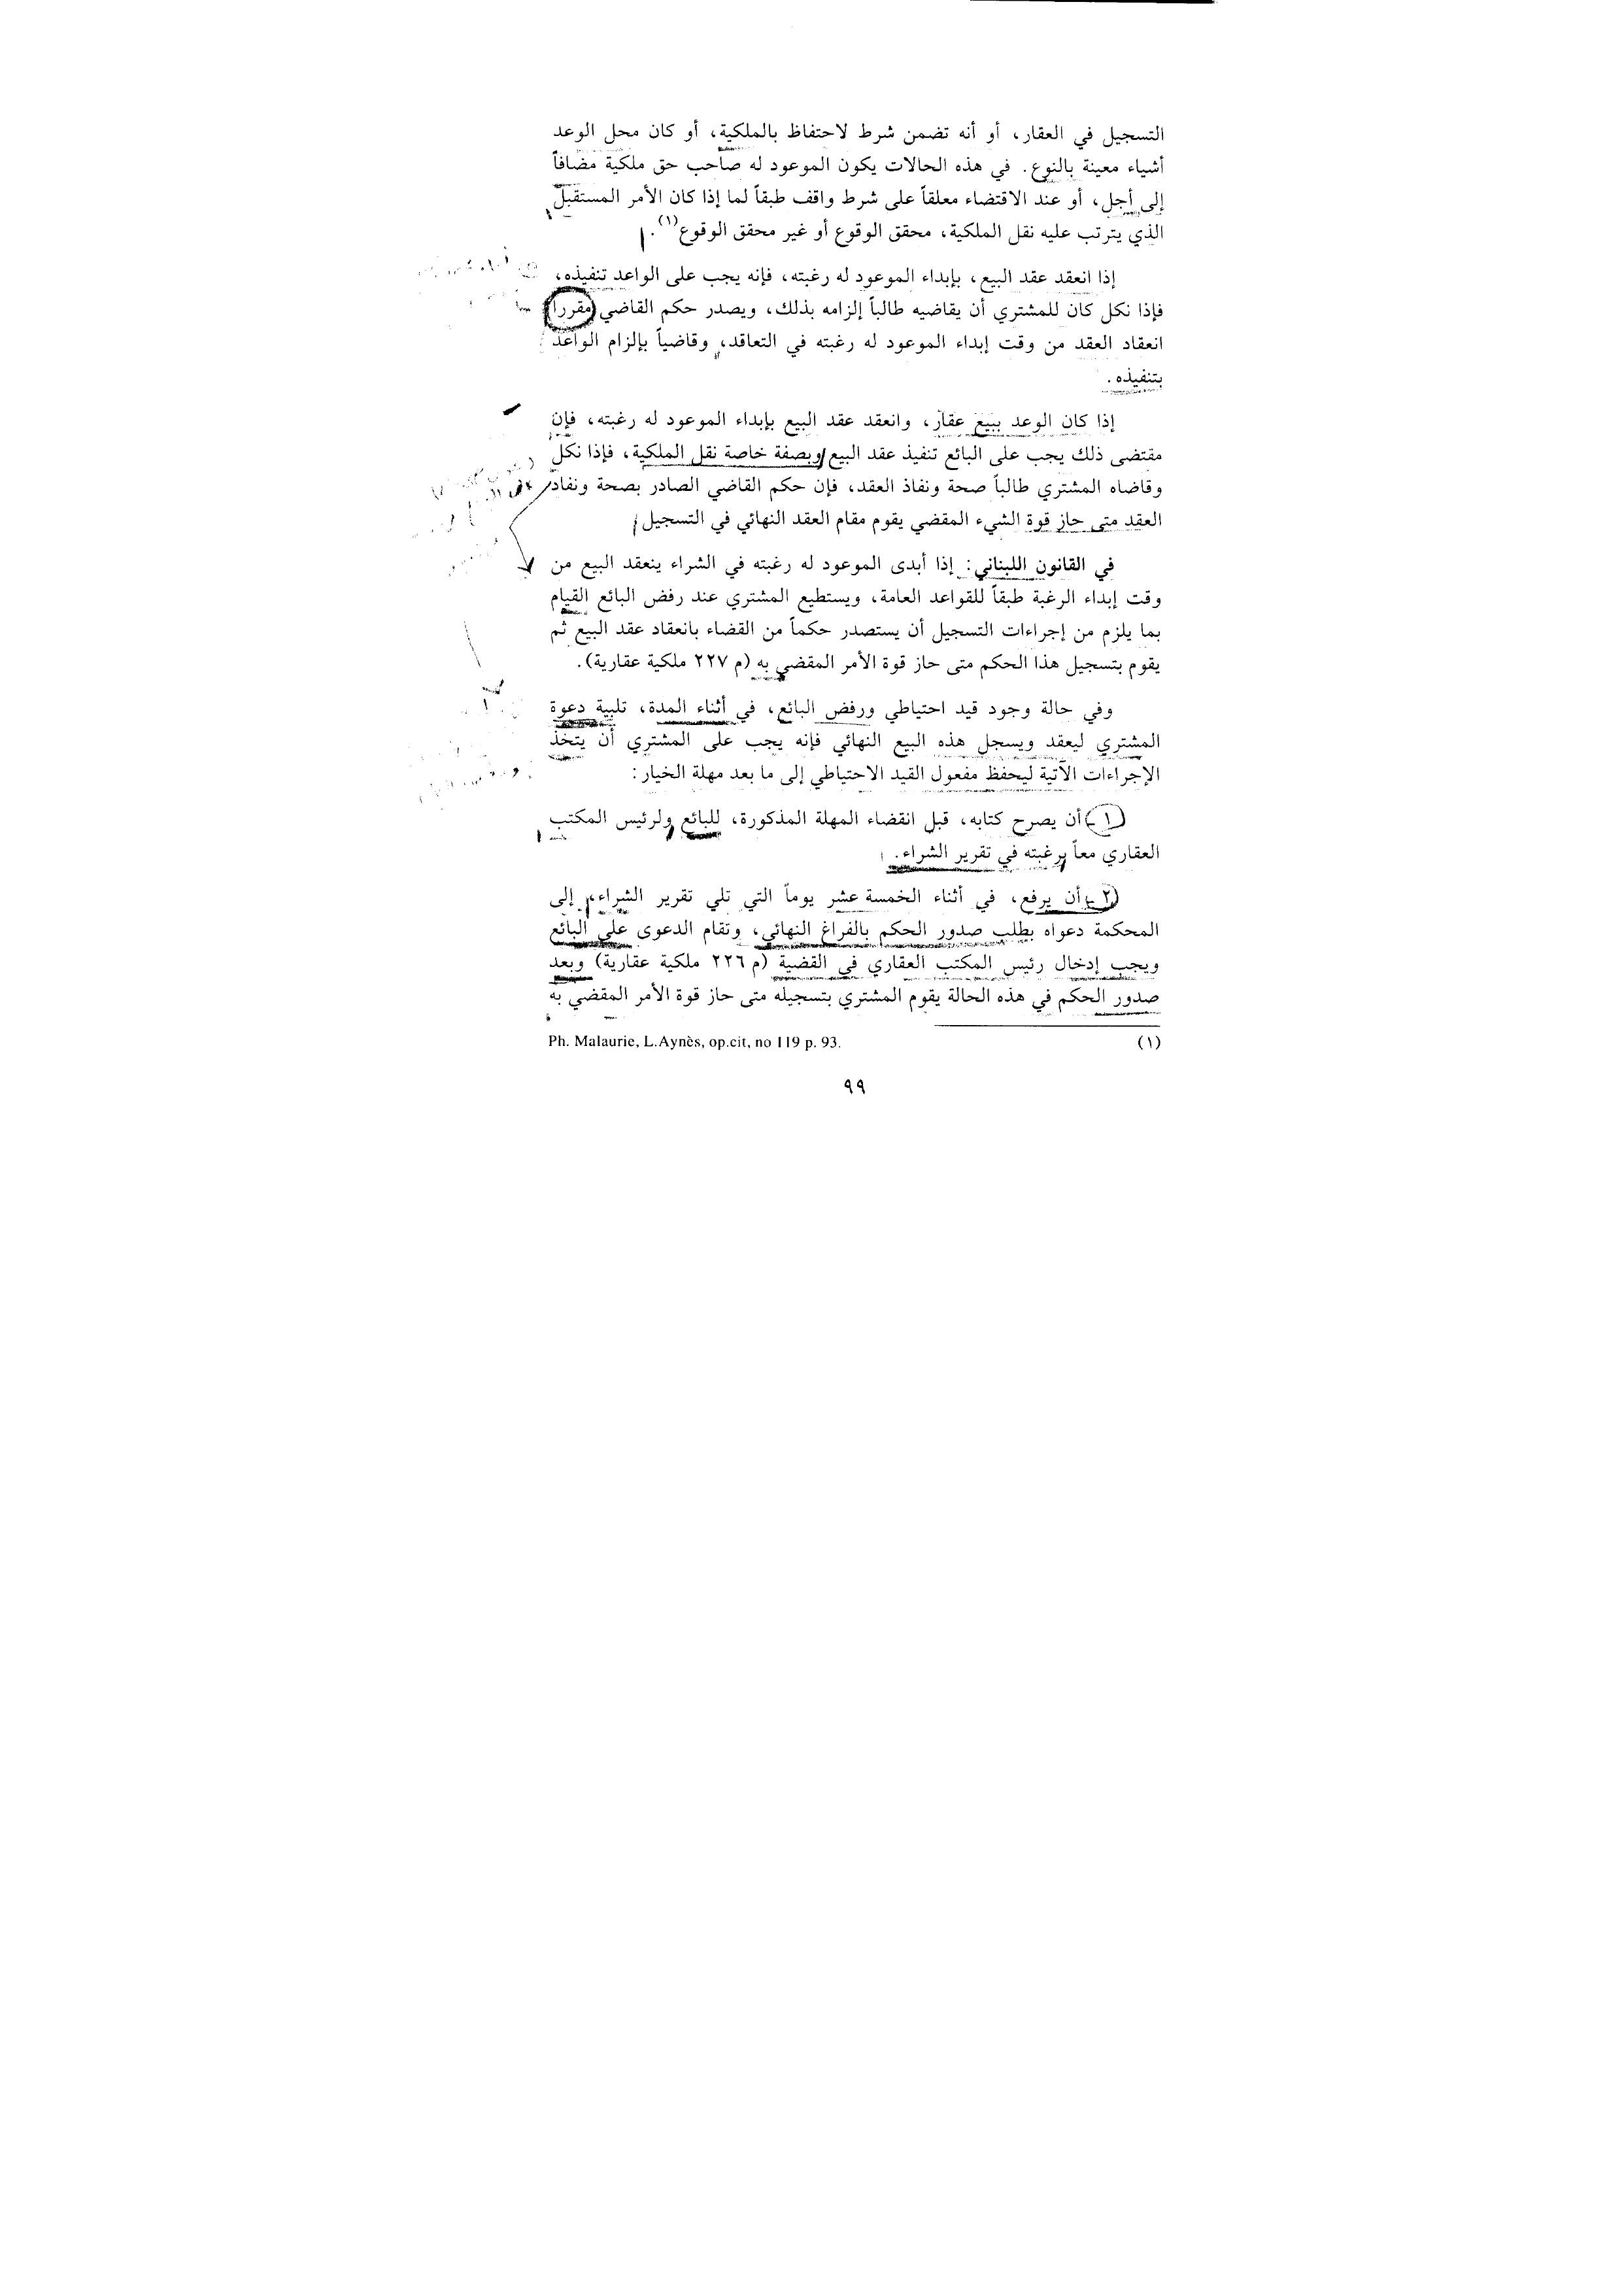 التسجيل في العقار، أو أنه تضمن شرط لاحتفاظ بالملكية، أو كان محل الوعد
أشياء معينة بالنوع. في هذه الحالات يكون الموعود له صاحب حق ملكية مضافاً
إلى أجل، أو عند الاقتضاء معلقاً على شرط واقف طبقاً لما إذا كان الأمر المستقبل
الذي يترتب عليه نقل الملكية، محقق الوقوع أو غير محقق الوقوع(١).
إذا انعقد عقد البيع، بإبداء الموعود له رغبته، فإنه يجب على الواعد تنفيذه،
فإذا نكل كان للمشتري أن يقاضيه طالباً إلزامه بذلك، ويصدر حكم القاضي مقرراً
انعقاد العقد من وقت إبداء الموعود له رغبته في التعاقد، وقاضياً بإلزام الواعد
بتنفيذه.
إذا كان الوعد ببيع عقار، وانعقد عقد البيع بإبداء الموعود له رغبته، فإن
مقتضى ذلك يجب على البائع تنفيذ عقد البيع وبصفة خاصة نقل الملكية، فإذا نكل
وقاضاه المشتري طالباً صحة ونفاذ العقد، فإن حكم القاضي الصادر بصحة ونفاذ
العقد متى حاز قوة الشيء المقضي يقوم مقام العقد النهائي في التسجيل
في القانون اللبناني: إذا أبدى الموعود له رغبته في الشراء ينعقد البيع من
وقت إبداء الرغبة طبقاً للقواعد العامة، ويستطيع المشتري عند رفض البائع القيام
بما يلزم من إجراءات التسجيل أن يستصدر حكماً من القضاء بانعقاد عقد البيع ثم
يقوم بتسجيل هذا الحكم متى حاز قوة الأمر المقضي به (م ٢٢٧ ملكية عقارية).
وفي حالة وجود قيد احتياطي ورفض البائع، في أثناء المدة، تلبية دعوة
المشتري ليعقد ويسجل هذه البيع النهائي فإنه يجب على المشتري أن يتخذ
الإجراءات الآتية ليحفظ مفعول القيد الاحتياطي إلى ما بعد مهلة الخيار:
١ - أن يصرح كتابه، قبل انقضاء المهلة المذكورة، للبائع ولرئيس المكتب
العقاري معاً برغبته في تقرير الشراء.
٢ - أن يرفع، في أثناء الخمسة عشر يوماً التي تلي تقرير الشراء، إلى
المحكمة دعواه بطلب صدور الحكم بالفراغ النهائي، وتقام الدعوى على البائع
ويجب إدخال رئيس المكتب العقاري في القضية (م ٢٢٦ ملكية عقارية) وبعد
صدور الحكم في هذه الحالة يقوم المشتري بتسجيله متى حاز قوة الأمر المقضي به
(١) Ph. Malaurie, L.Aynès, op.cit, no 119 p. 93.
٩٩